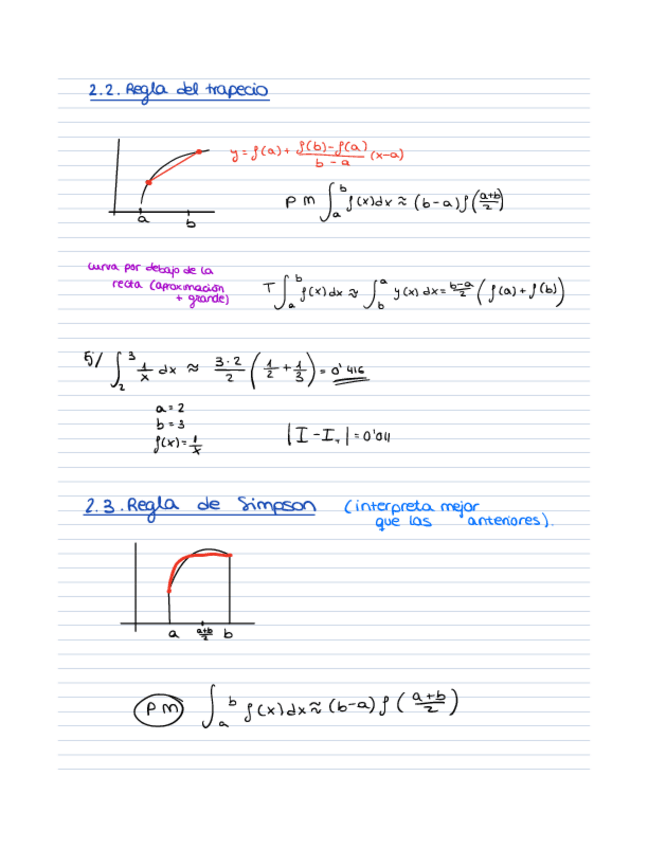 2.2. Regla del trapecio
y = f(a) + \frac{f(b)-f(a)}{b-a} (x-a)
a b
PM ∫_a^b f(x)dx ≈ (b-a) f(\frac{a+b}{2})
curva por debajo de la
recta (aproximación
+ grande)
T ∫_a^b f(x)dx ≈ ∫_b^a y(x)dx = \frac{b-a}{2} (f(a) + f(b))
5/ ∫_2^3 \frac{1}{x} dx ≈ \frac{3·2}{2} (\frac{1}{2} + \frac{1}{3}) = 0'416
a = 2
b = 3
f(x) = \frac{1}{x}
|I - I_T| = 0'04
2.3. Regla de Simpson (interpreta mejor
que las anteriores).
a \frac{a+b}{2} b
PM ∫_a^b f(x)dx ≈ (b-a) f(\frac{a+b}{2})